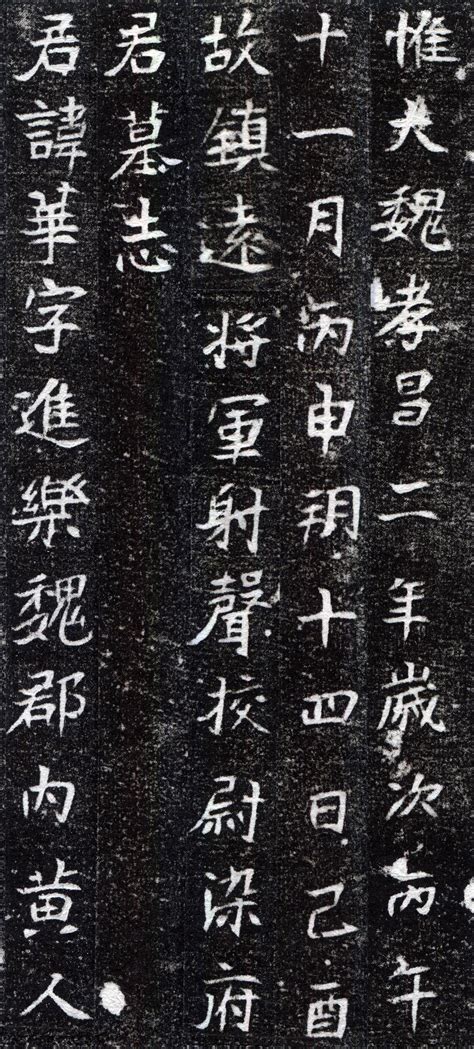 惟大魏孝昌二年歲次丙午
十一月丙申朔十四日己酉
故鎮遠將軍射聲挍尉染府
君墓志
君諱華字進樂魏郡内黄人